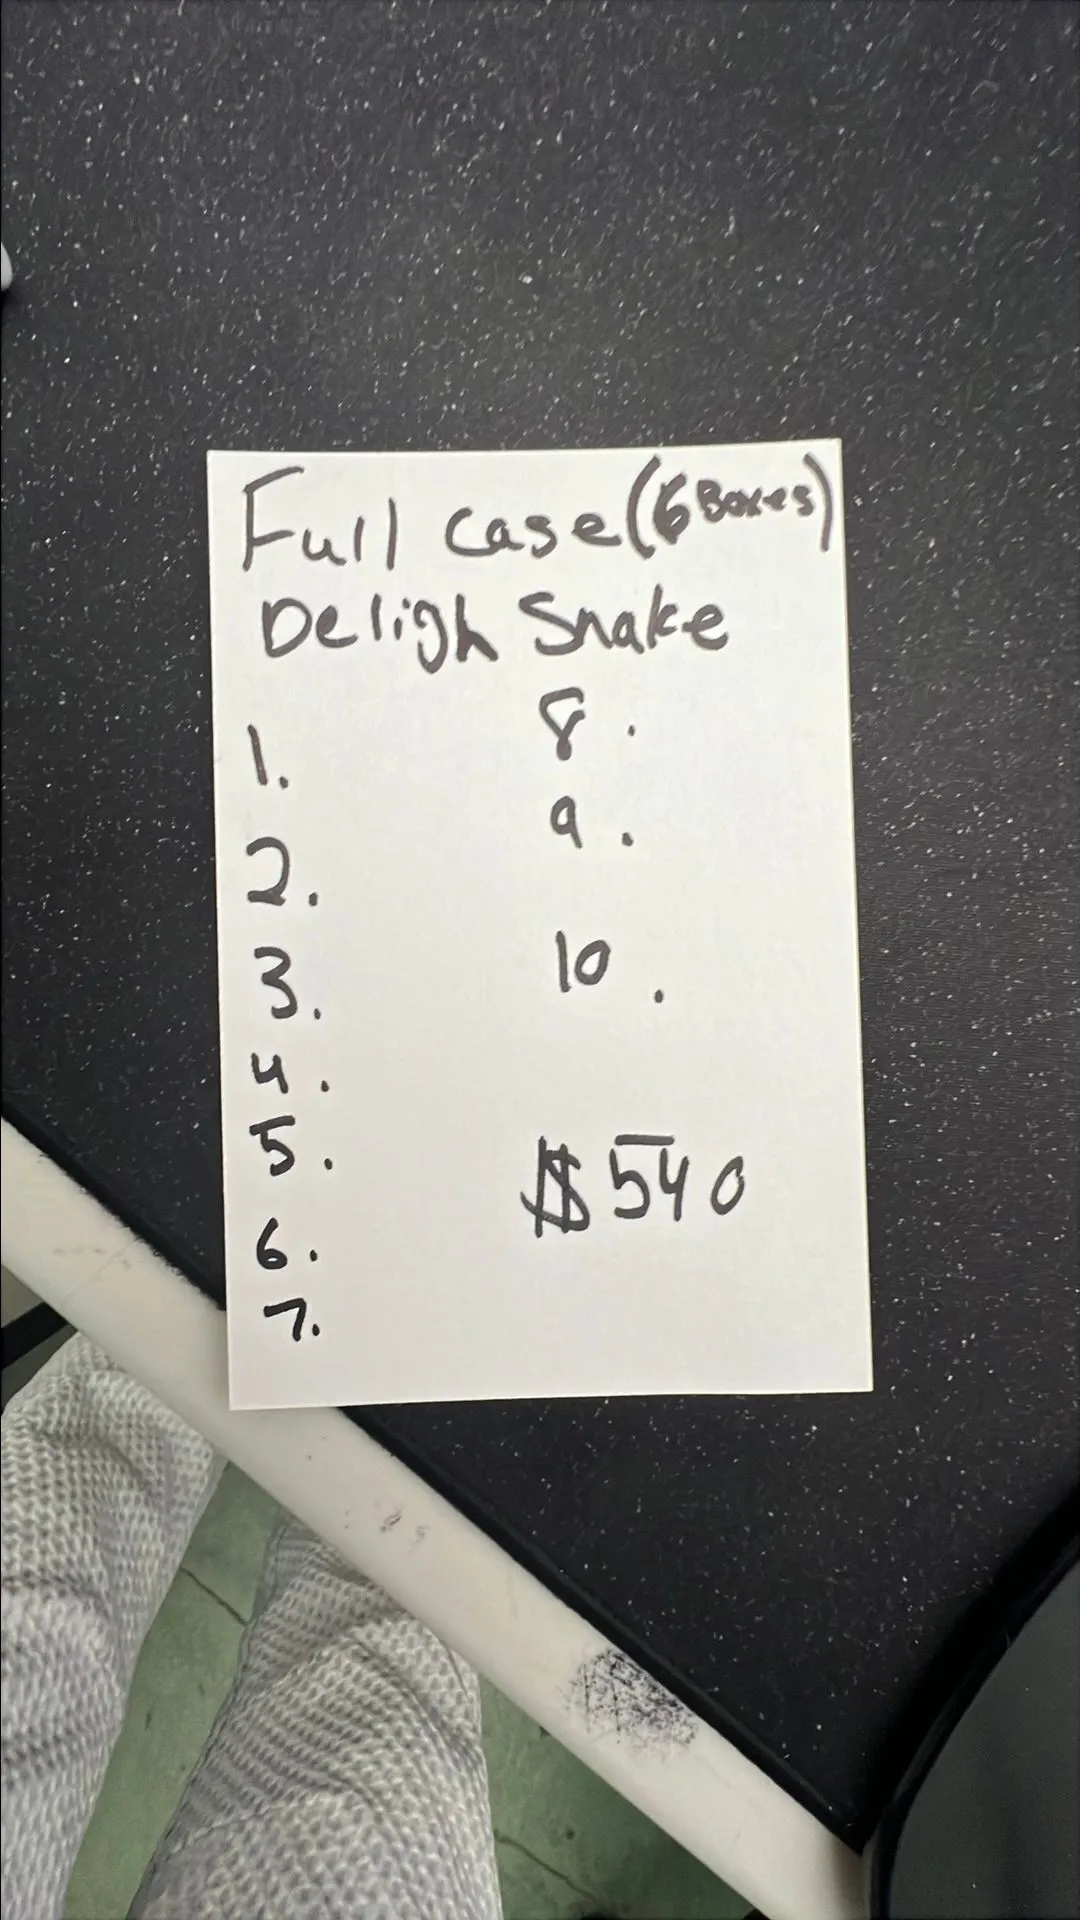 Full case (6 Boxes)
Deligh Snake
1.
2.
3.
4.
5.
6.
7.
8.
9.
10.
$540